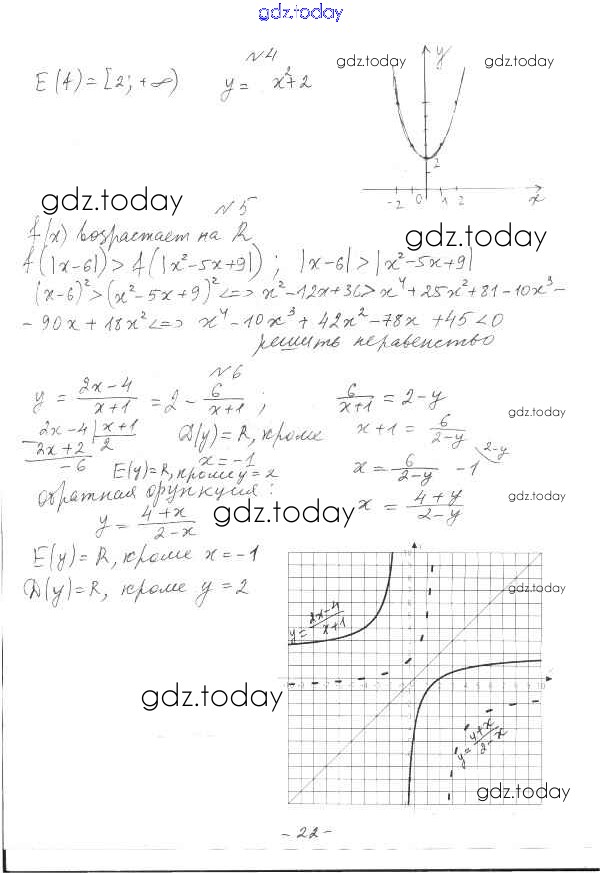 gdz.today
N4
gdz.today gdz.today
E(f)=[2; +∞) y = x²+2
y
2
-2 0 1 2 x
gdz.today
N5
f(x) возрастает на R
gdz.today
f(|x-6|) > f(|x²-5x+9|) ; |x-6| > |x²-5x+9|
(x-6)² > (x²-5x+9)² <=> x²-12x+36 > x⁴+25x²+81-10x³-
-90x+18x² <=> x⁴-10x³+42x²-78x+45<0
решить неравенство
N6
y = (2x-4)/(x+1) = 2 - 6/(x+1) ; 6/(x+1) = 2-y
gdz.today
2x-4 | x+1
2x+2 | 2
-6
D(y)=R, кроме x=-1
x+1 = 6/(2-y)
E(y)=R, кроме y=2
x = 6/(2-y) - 1 2-y
обратная функция:
gdz.today
y = (4+x)/(2-x)
gdz.today
x = (4+y)/(2-y)
E(y)=R, кроме x=-1
D(y)=R, кроме y=2
gdz.today
y=(2x-4)/(x+1)
gdz.today
y=(4+x)/(2-x)
gdz.today
-22-